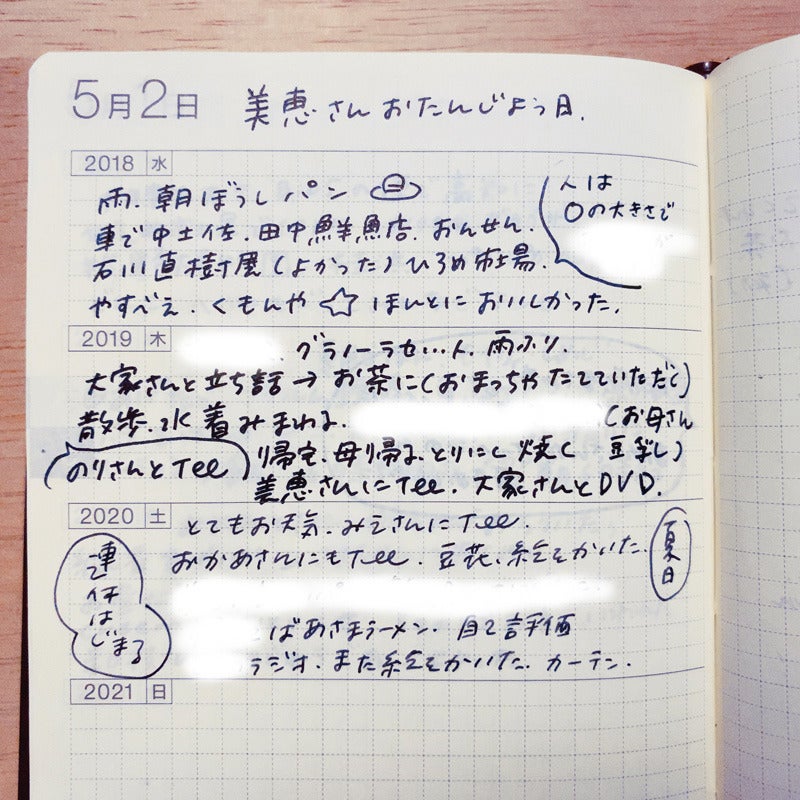 5月2日 美恵さんおたんじょう日.
2018 水
雨. 朝ぼうしパン
車で中土佐. 田中鮮魚店. おんせん.
石川直樹展(よかった)ひろめ市場.
やすべえ. くもんや ☆ ほんとにおいしかった.
人は
○の大きさで
2019 木
. グラノーラせい人. 雨ふり.
大家さんと立ち話→お茶に(おまっちゃたてていただく)
散歩. 水着みまわる. (お母さん
のりさんとTEL
帰宅. 母帰る. とりにく焼く 豆ごはし)
美恵さんにTEL. 大家さんとDVD.
2020 土
とてもお天気. みえさんにTEL.
おかあさんにもTEL. 豆花. 絵をかいた.
夏日
連休はじまる
ばあさまラーメン. 自己評価
ラジオ. また絵をかいた. カーテン.
2021 日